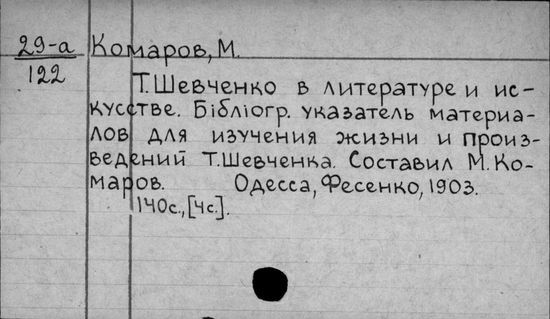 29-а Комаров, М.
122
Т. Шевченко в литературе и ис-
кусстве. Бібліогр. указатель материа-
лов для изучения жизни и произ-
ведений Т. Шевченка. Составил М. Ко-
маров. Одесса, Фесенко, 1903.
140с., [4с.].